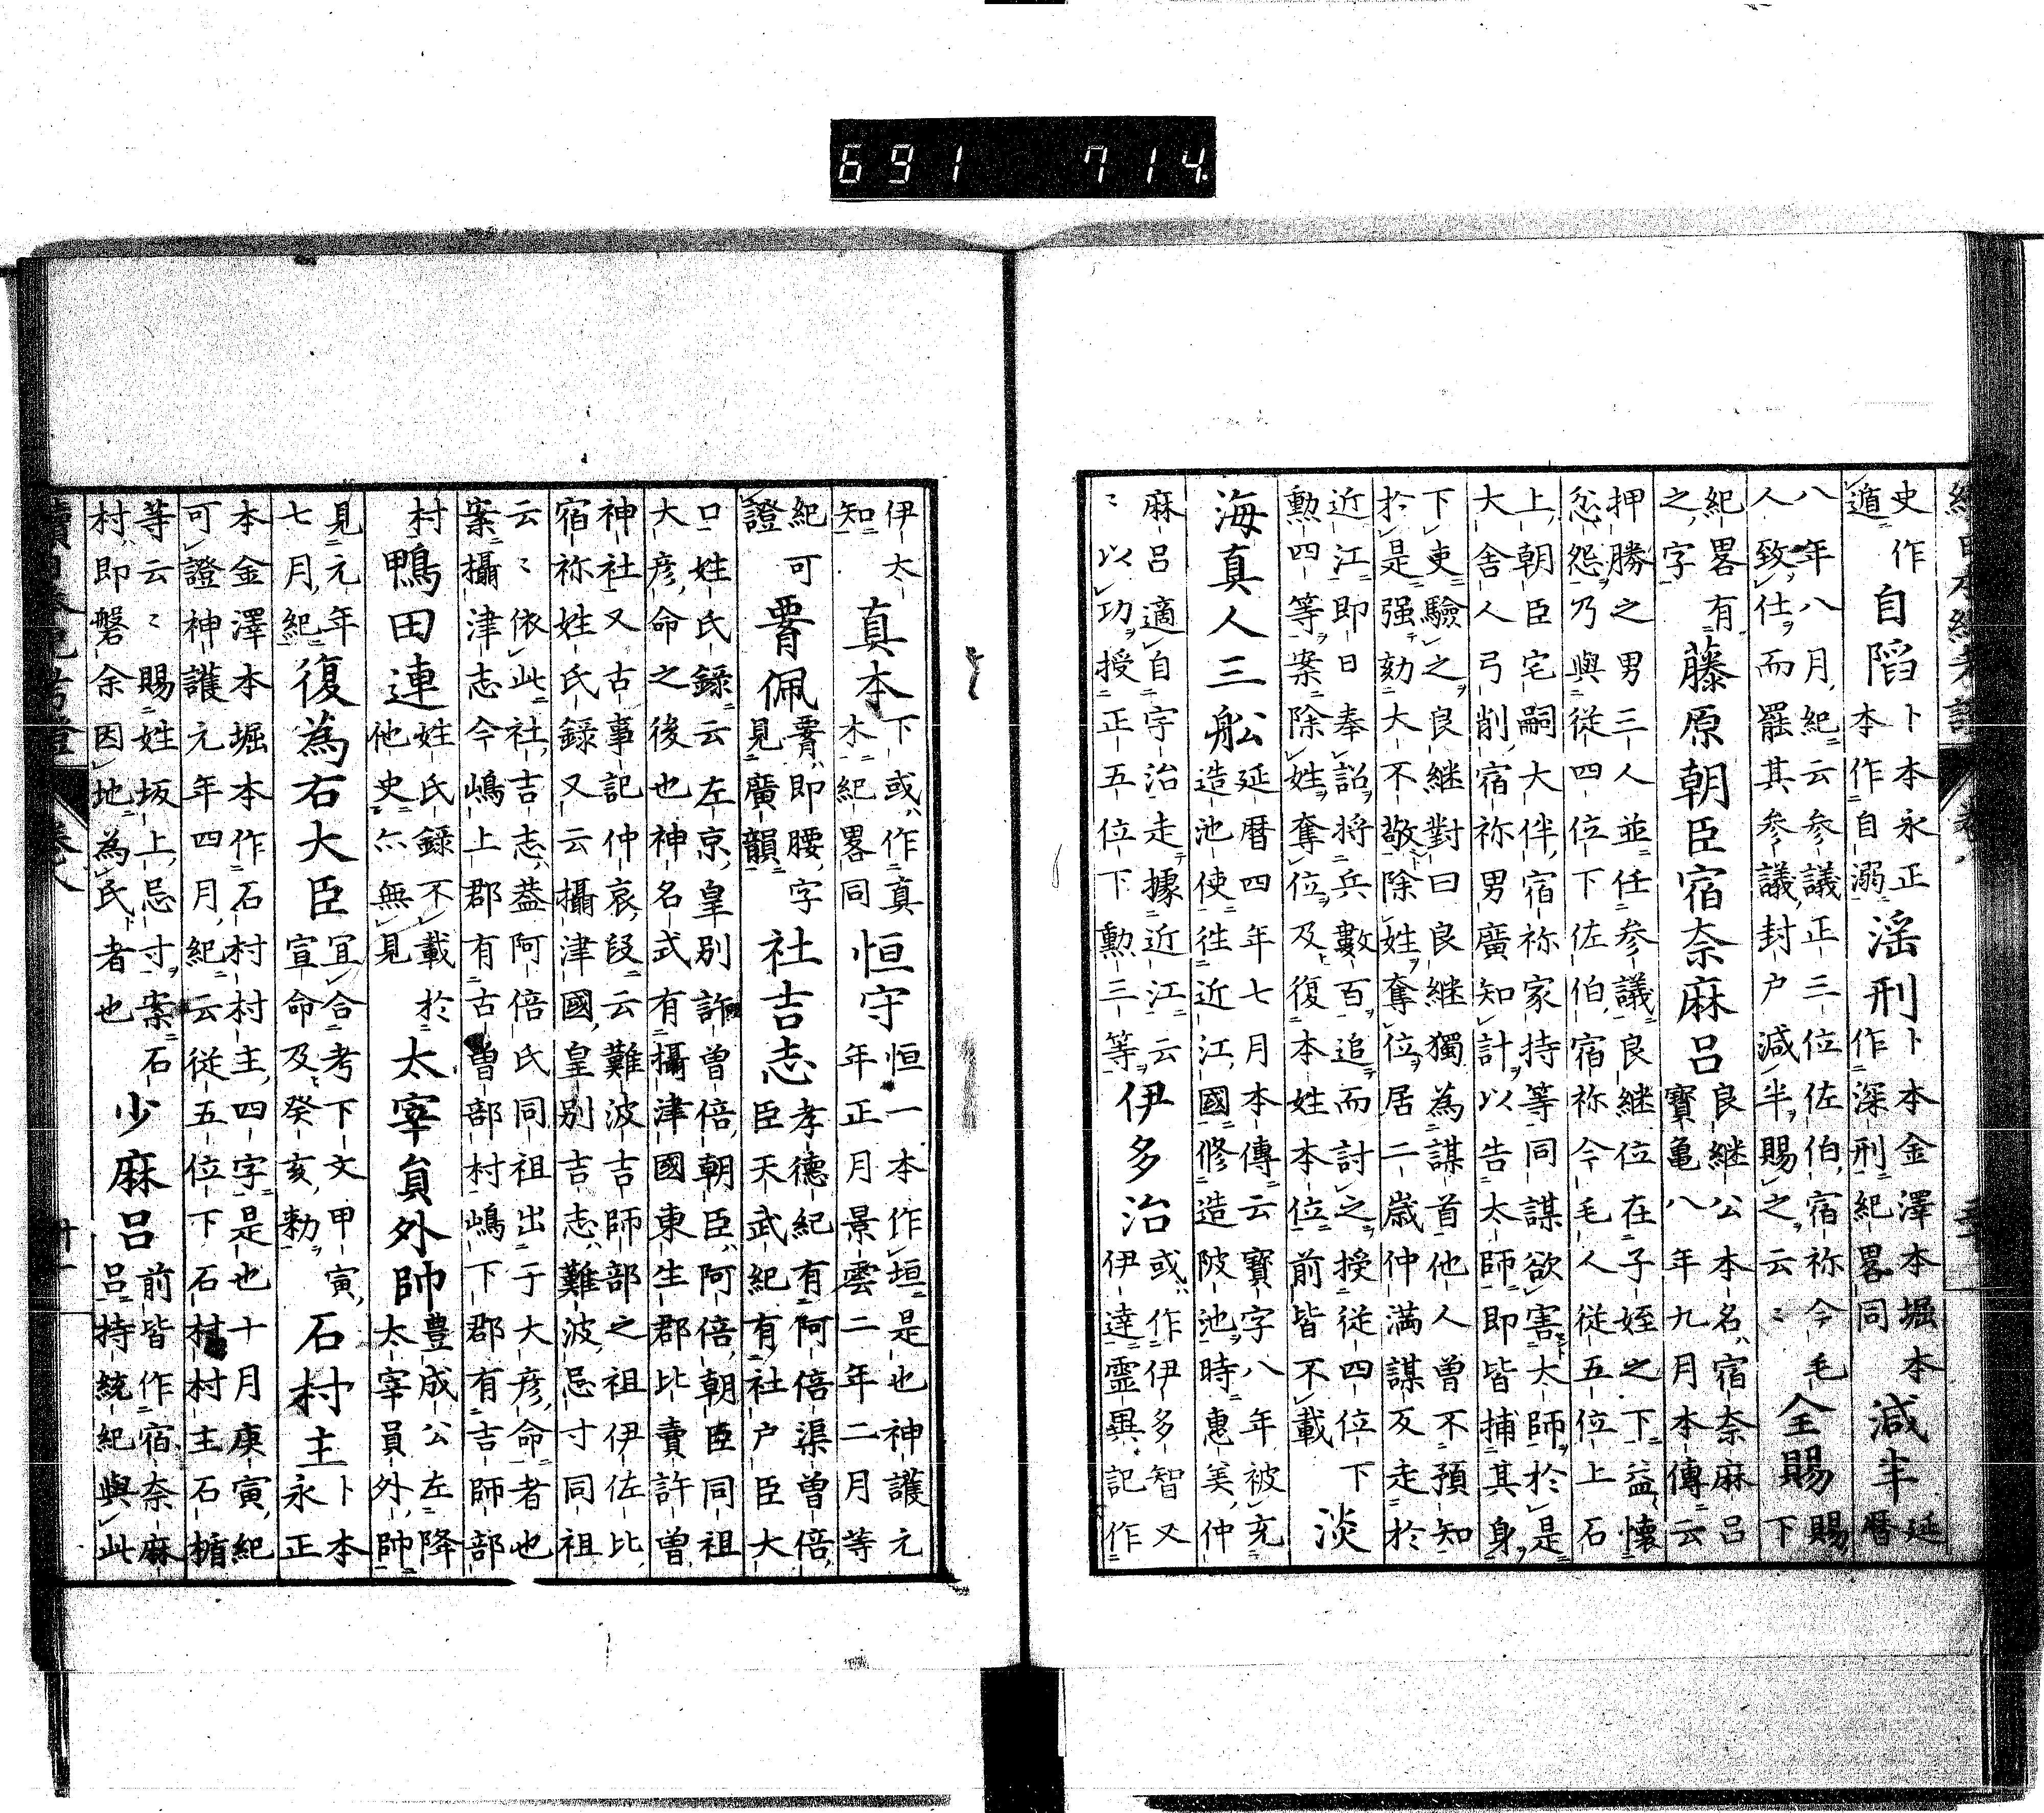 691 714
史作
遁 自蹈 卜本永正
本作自溺 淫刑 卜本金澤本堀本
作深刑紀畧同 減半 延
暦
八年八月紀云参議正三位佐伯宿祢今毛
人致仕而罷其参議封戸減半賜之云〻 全賜 賜
下
紀畧有
之字 藤原朝臣宿奈麻呂 良継公本名宿奈麻呂
寶亀八年九月本傳云
押勝之男三人並任参議良継位在子姪之下益懐
忿怨乃與従四位下佐伯宿祢今毛人従五位上石
上朝臣宅嗣大伴宿祢家持等同謀欲害大師於是
大舎人弓削宿祢男廣知計以告太師即皆捕其身
下吏驗之良継對曰良継獨為謀首他人曽不預知
於是强劾大不敬除姓奪位居二歳仲満謀反走於
近江即日奉詔将兵數百追而討之授従四位下
勳四等案除姓奪位及復本姓本位前皆不載 淡
海真人三舩 延暦四年七月本傳云寶字八年被充
造池使徃近江國修造陂池時惠美仲
麻呂適自宇治走據近江云
〻以功授正五位下勳三等 伊多治 或作伊多智又
伊達霊異記作
伊太
知 真本 下或作真
木紀畧同 恒守 恒一本作垣是也神護元
年正月景雲二年二月等
紀可
證 䙅佩 䙅即腰字
見廣韻 社吉志 孝德紀有阿倍渠曽倍
臣天武紀有社戸臣大
口姓氏録云左京皇別許曽倍朝臣阿倍朝臣同祖
大彦命之後也神名式有攝津國東生郡比賣許曽
神社又古事記仲哀段云難波吉師部之祖伊佐比
宿祢姓氏録又云攝津國皇別吉志難波忌寸同祖
云〻依此社吉志蓋阿倍氏同祖出于大彦命者也
案攝津志今嶋上郡有古曽部村嶋下郡有吉師部
村 鴨田連 姓氏録不載於
他史亦無見 太宰員外帥 豊成公左降
太宰員外帥
見元年
七月紀 復為右大臣 宜合考下文甲寅
宣命及癸亥勅 石村主 卜本
永正
本金澤本堀本作石村村主四字是也十月庚寅紀
可證神護元年四月紀云従五位下石村村主石楯
等云〻賜姓坂上忌寸案石
村即磐余因地為氏者也 少麻呂 前皆作宿奈麻
呂持統紀與此